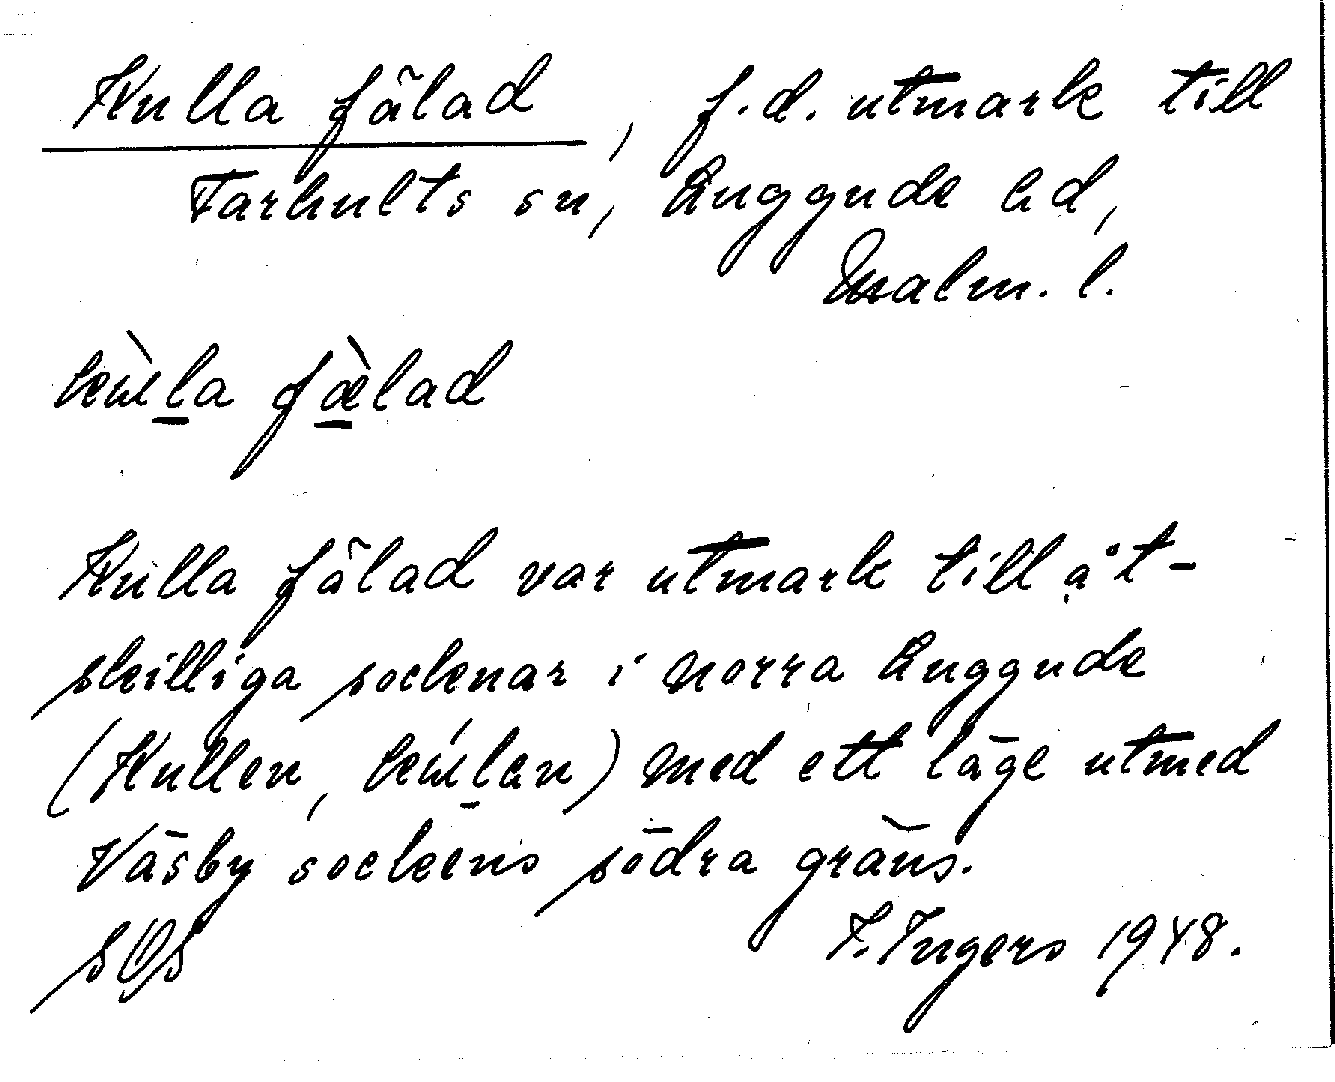 Kulla fälad, f.d. utmark till
Farhults sn, Luggude hd,
Malm. l.
kùlla fæ̀lad
Kulla fälad var utmark till åt-
skilliga socknar i norra Luggude
(Kullen, kúllen) med ett läge utmed
Väsby sockens södra gräns.
SOS F. Ingers 1948.